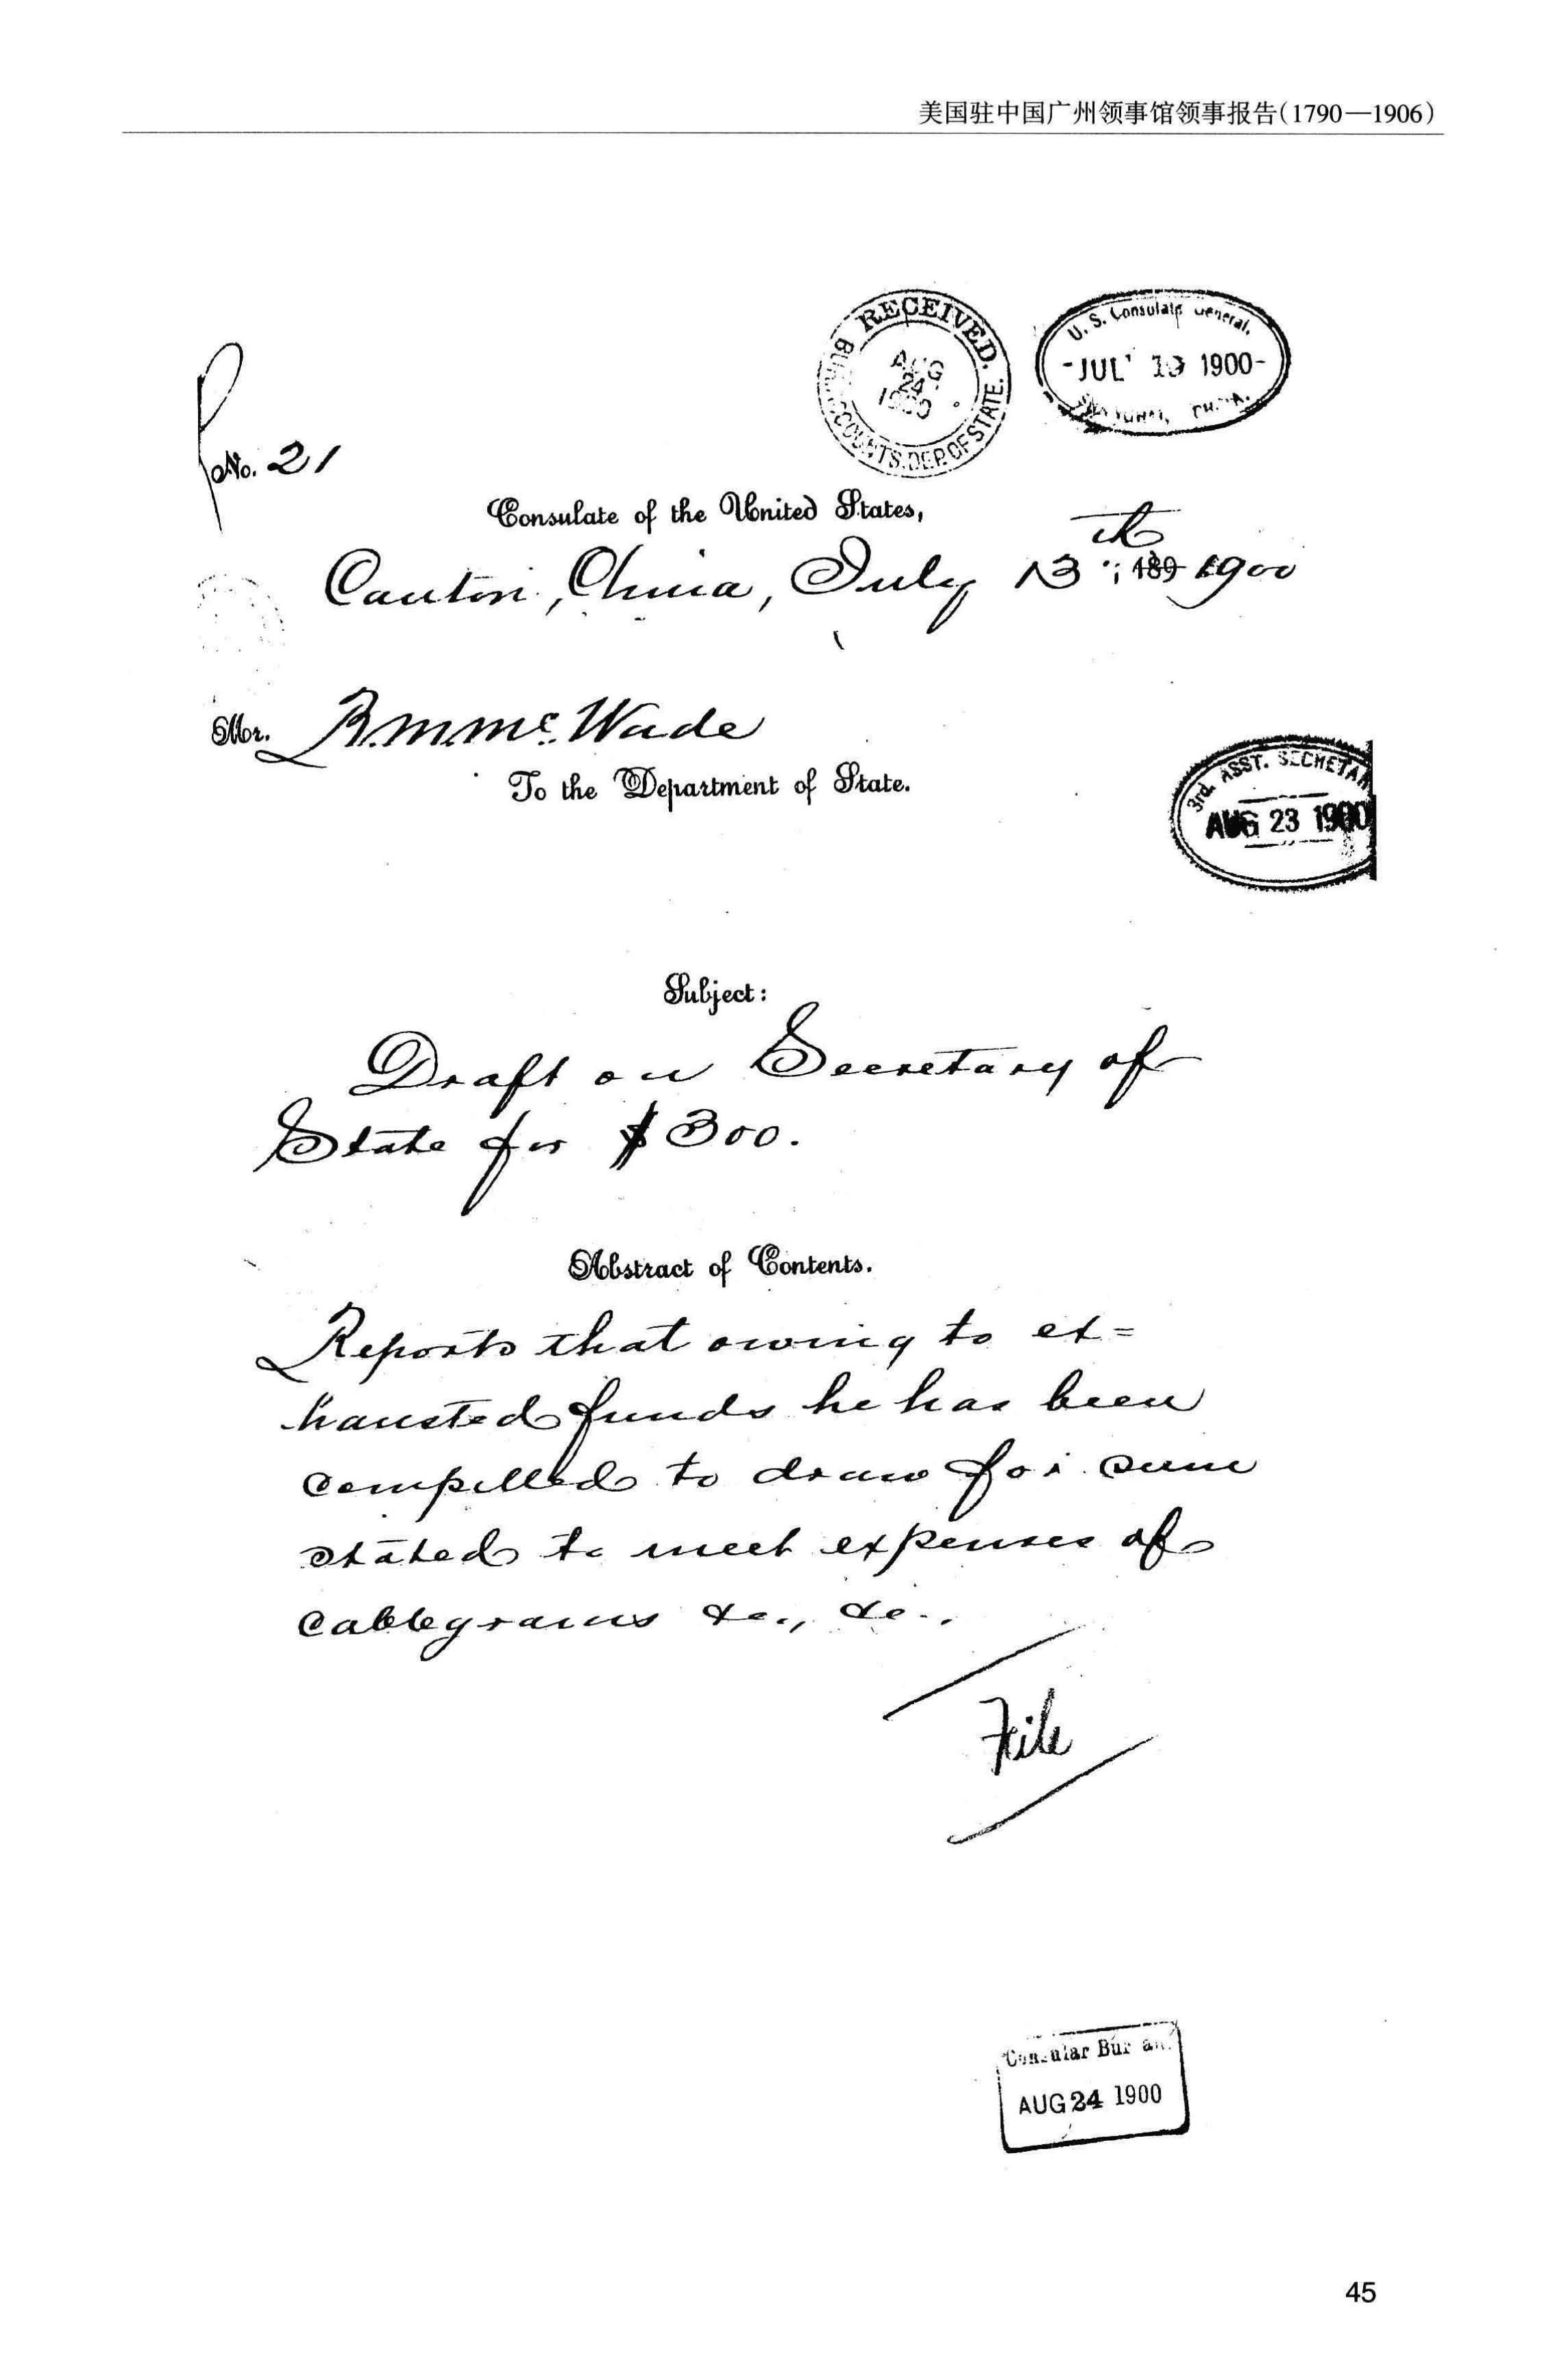 美国驻中国广州领事馆领事报告(1790—1906)
RECEIVED.
AUG
24
1900
ACCOUNTS, DEP. OF STATE.
U. S. Consulate General,
JUL 19 1900
No. 21
Consulate of the United States,
Canton, China, July 13th, 189 1900
Mr. R. M. McWade
To the Department of State.
3rd. ASST. SECRETA
AUG 23 1900
Subject:
Draft on Secretary of
State for $300.
Abstract of Contents.
Reports that owing to ex=
hausted funds he has been
compelled to draw for sum
stated to meet expenses of
cablegrams &c., &c..
File
Consular Bureau
AUG 24 1900
45